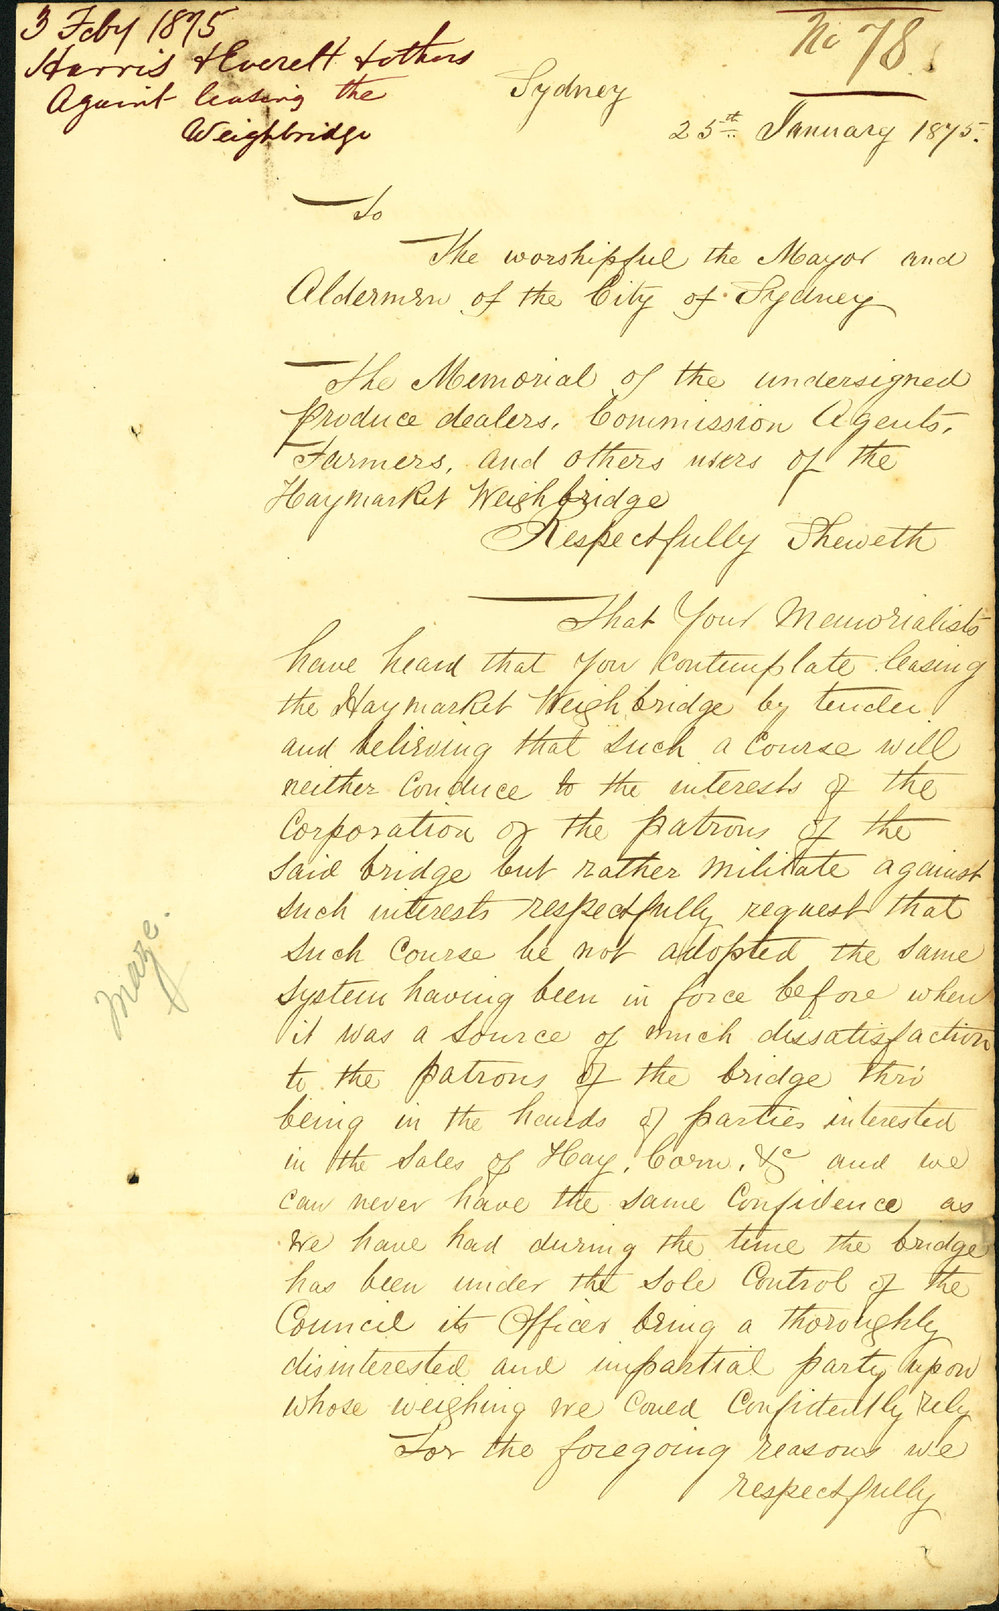 3 Feby 1875
Harris & Everett & others
Against leasing the
Weighbridge
No 78
Sydney
25th January 1875.
To
The worshipful the Mayor and
Aldermen of the City of Sydney
The Memorial of the undersigned
produce dealers, Commission Agents,
Farmers, and others users of the
Haymarket Weighbridge
Respectfully Sheweth
That Your Memorialists
have heard that you contemplate leasing
the Haymarket Weighbridge by tender
and believing that such a course will
neither conduce to the interests of the
Corporation or the patrons of the
said bridge but rather militate against
such interests respectfully request that
such course be not adopted the same
system having been in force before when
it was a source of much dissatisfaction
to the patrons of the bridge thro
being in the hands of parties interested
in the sales of Hay, Corn, &c and we
can never have the same confidence as
we have had during the time the bridge
has been under the sole control of the
Council its Officer being a thoroughly
disinterested and impartial party upon
whose weighing we could confidently rely
For the foregoing reasons we
respectfully
Maze.